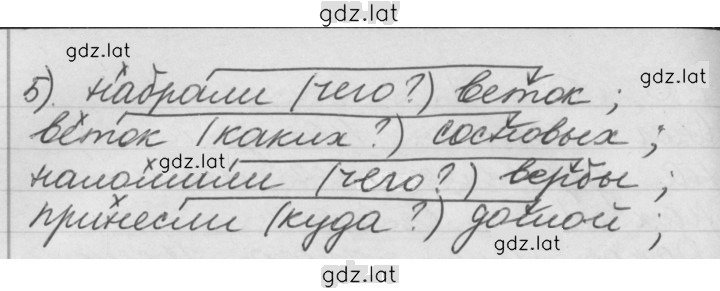 gdz.lat
gdz.lat
5). набрали (чего?) веток;
gdz.lat
веток (каких?) сосновых;
gdz.lat
наломили (чего?) вербы;
принесли (куда?) домой;
gdz.lat
gdz.lat